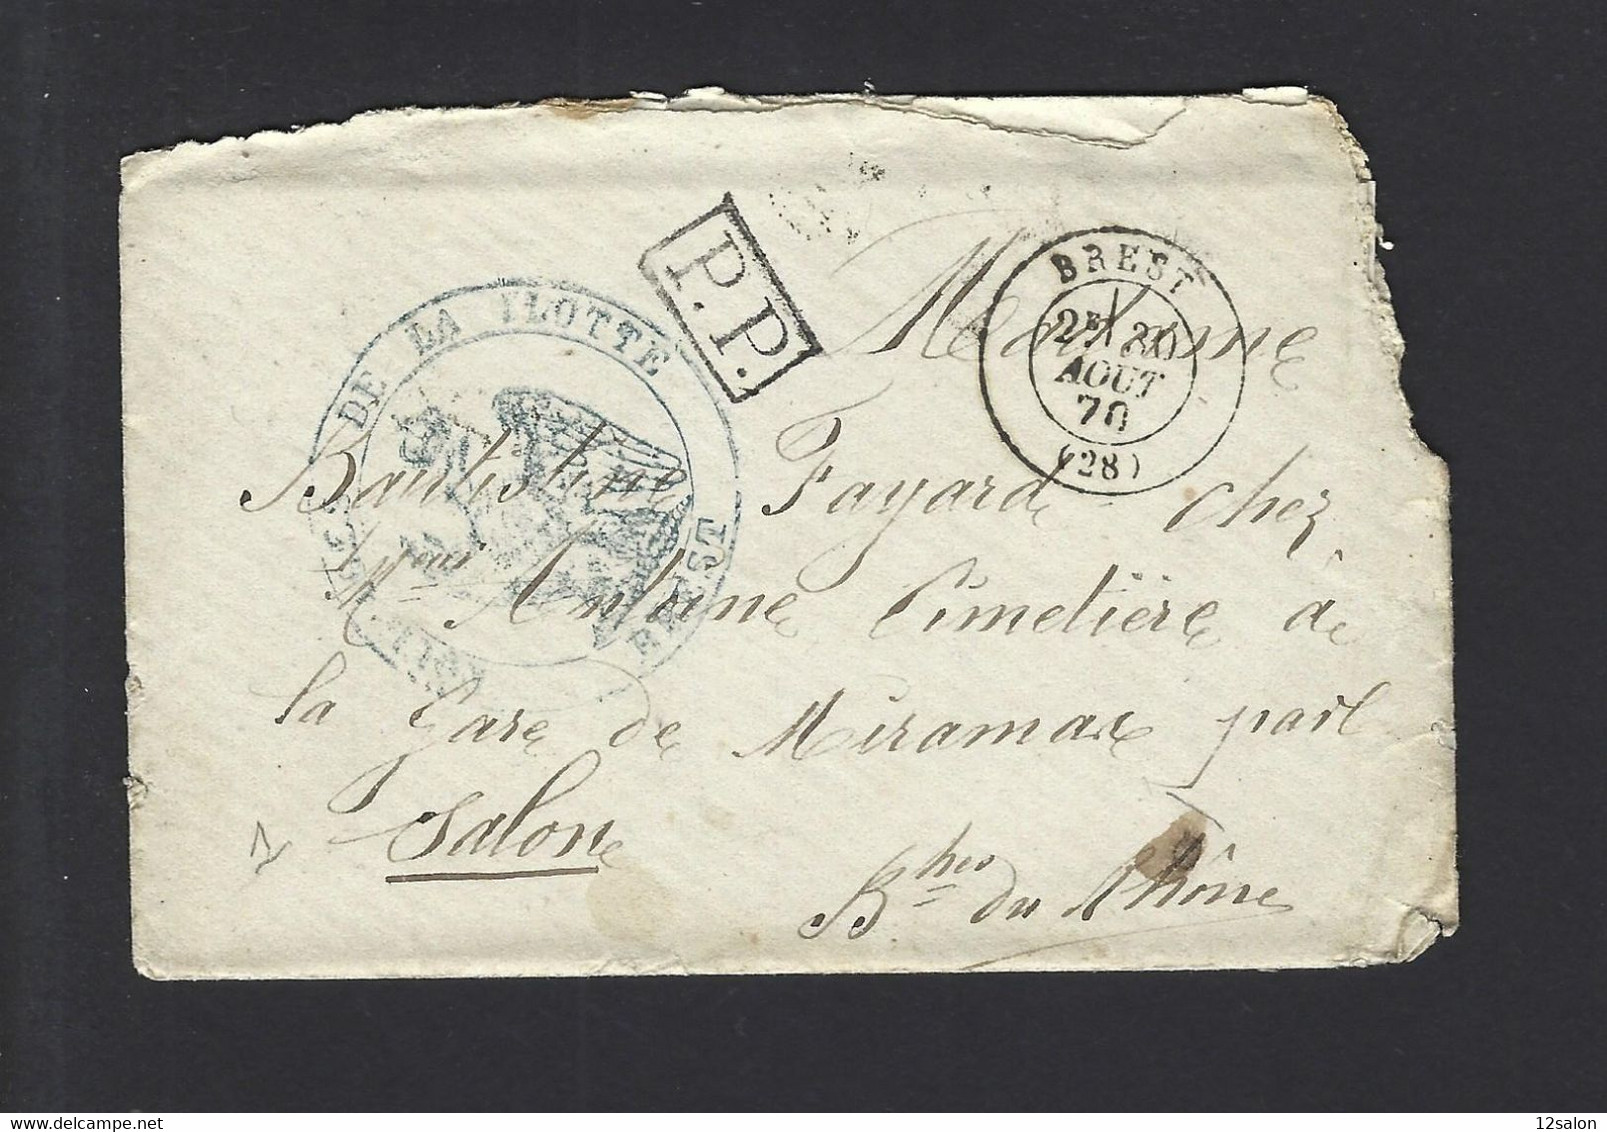 P.P.
BREST
2E 30
AOUT
70
(28)
DE LA FLOTTE
BREST
Madame
Baptistine Fayard chez
Mour Antoine Cimetière à
la Gare de Miramas par
Salon
Bhes du Rhône
www.delcampe.net
12salon